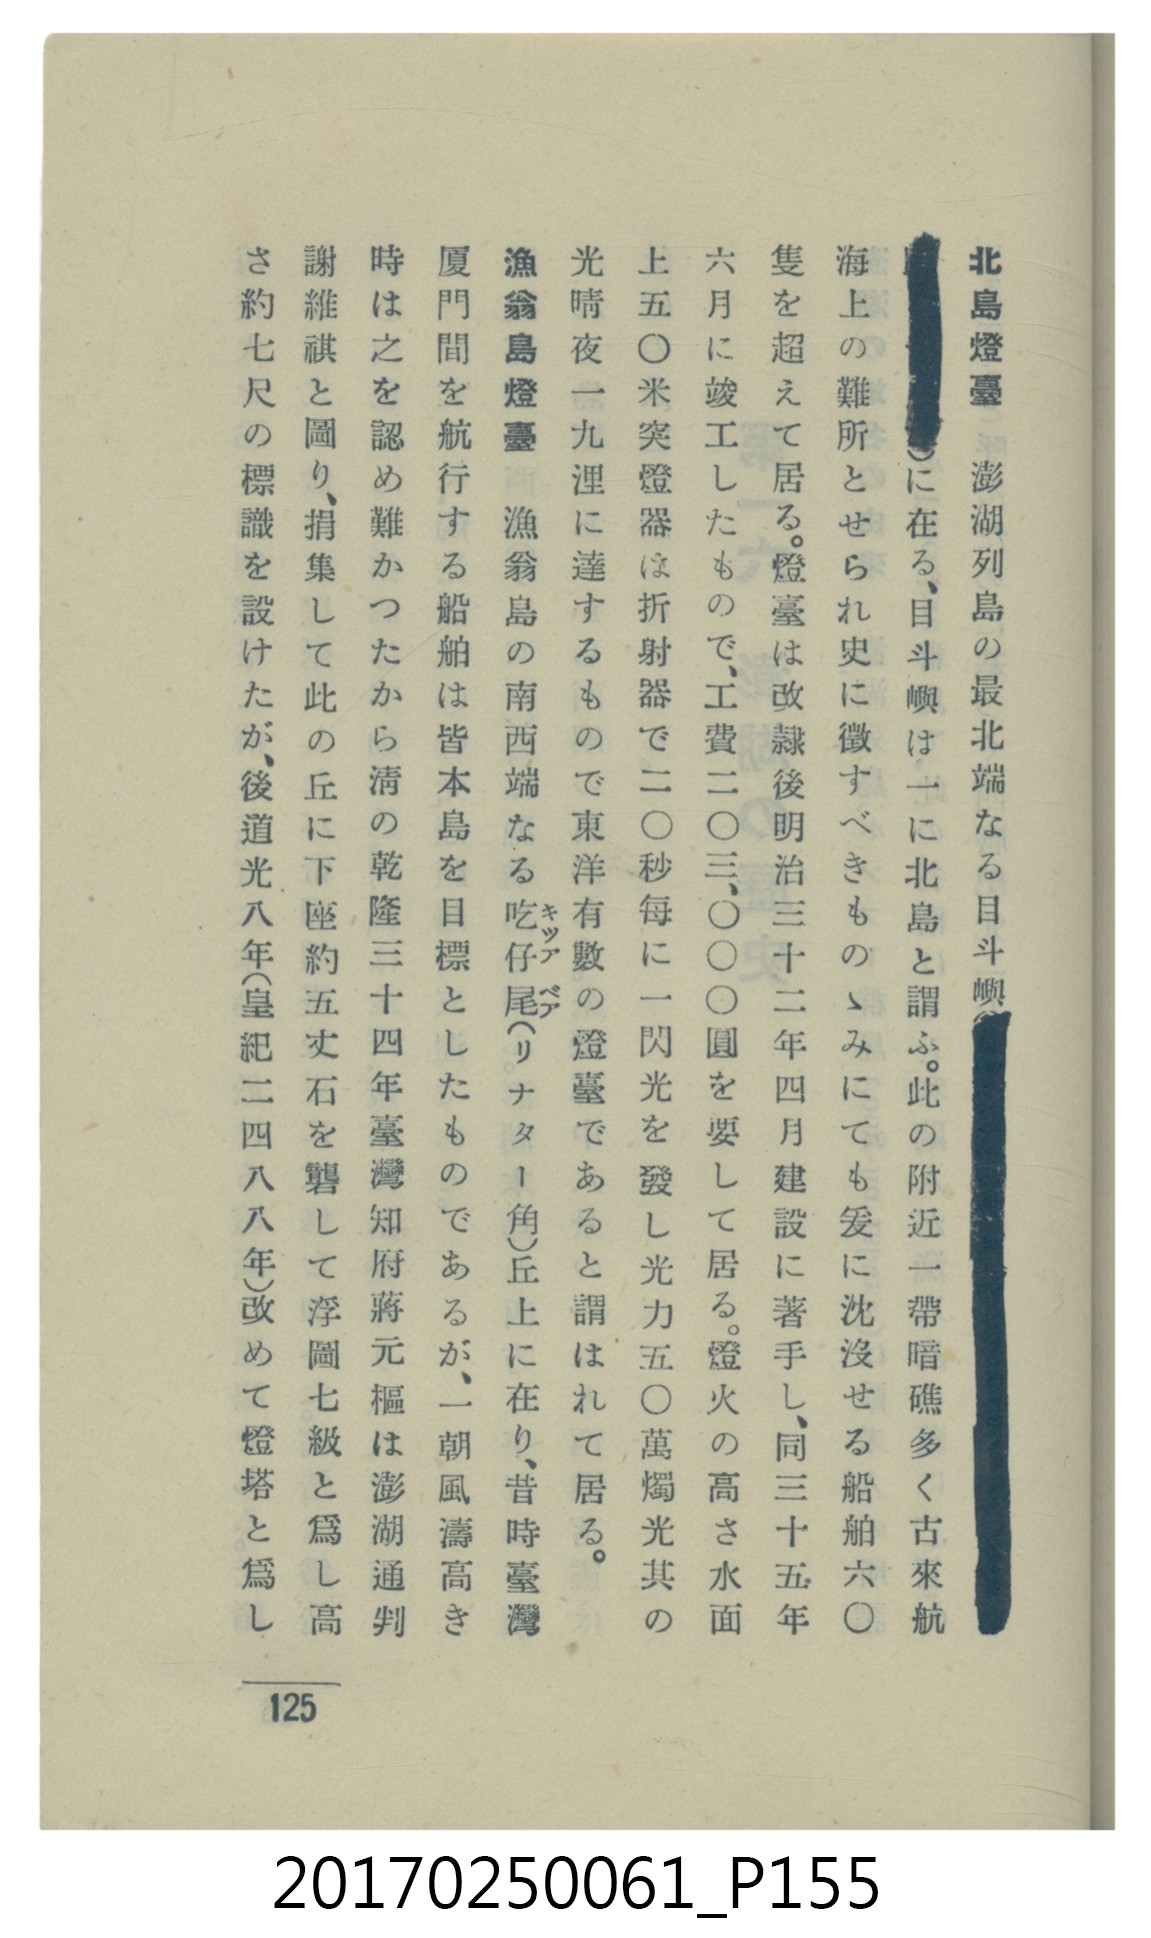 北島燈臺　澎湖列島の最北端なる目斗嶼(
)に在る、目斗嶼は一に北島と謂ふ。此の附近一帶暗礁多く古來航
海上の難所とせられ史に徵すべきものゝみにても爰に沈沒せる船舶六〇
隻を超えて居る。燈臺は改隷後明治三十二年四月建設に著手し、同三十五年
六月に竣工したもので、工費二〇三、〇〇〇圓を要して居る。燈火の高さ水面
上五〇米突燈器は折射器で二〇秒每に一閃光を發し光力五〇萬燭光其の
光晴夜一九浬に達するもので東洋有數の燈臺であると謂はれて居る。
漁翁島燈臺　漁翁島の南西端なる吃仔尾(リナター角)丘上に在り、昔時臺灣
キツア　ベア
厦門間を航行する船舶は皆本島を目標としたものであるが、一朝風濤高き
時は之を認め難かつたから淸の乾隆三十四年臺灣知府蔣元樞は澎湖通判
謝維祺と圖り、捐集して此の丘に下座約五丈石を礱して浮圖七級と爲し高
さ約七尺の標識を設けたが、後道光八年(皇紀二四八八年)改めて燈塔と爲し
125
20170250061_P155